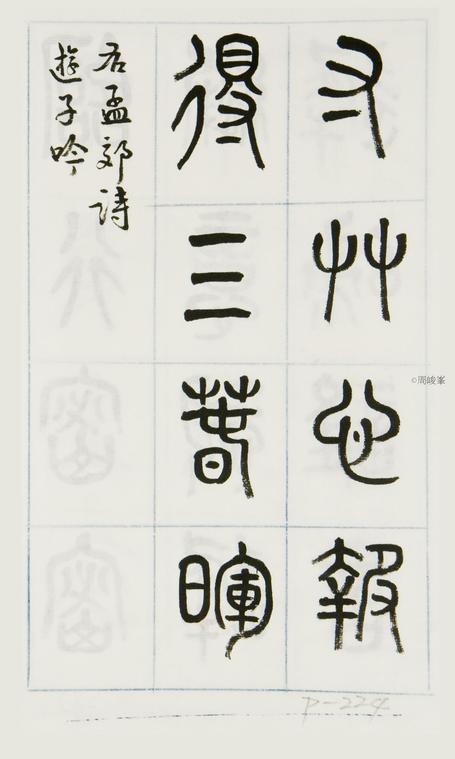 寸艸心報
得三萅暉
右孟郊詩
遊子吟
©周峻峯
P-224